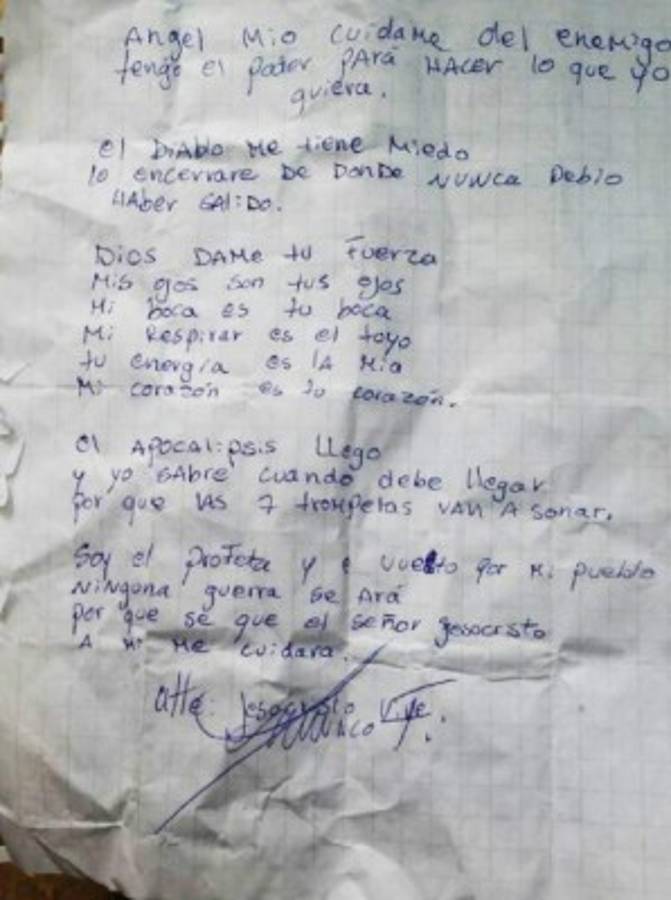 Angel Mio cuidame del enemigo
tengo el poder PARA HACER lo que yo
quiera.
el DiAblo Me tiene Miedo
lo encerrare DE DonDe NUNCA Debio
HAber SAliDo.
Dios DAMe tu Fuerza
Mis ojos son tus ojos
Mi boca es tu boca
Mi Respirar es el tuyo
tu energía es lA Mia
Mi corazón es tu corazón.
el APocalipsis llego
y yo SAbre cuando debe llegar
por que lAS 7 trompetas VAN A sonar.
Soy el profeta y e vuelto por Mi pueblo
Ninguna guerra se Ará
por que se que el señor jesocristo
A Mi Me cuidara.
atte: jesocristo Vive.